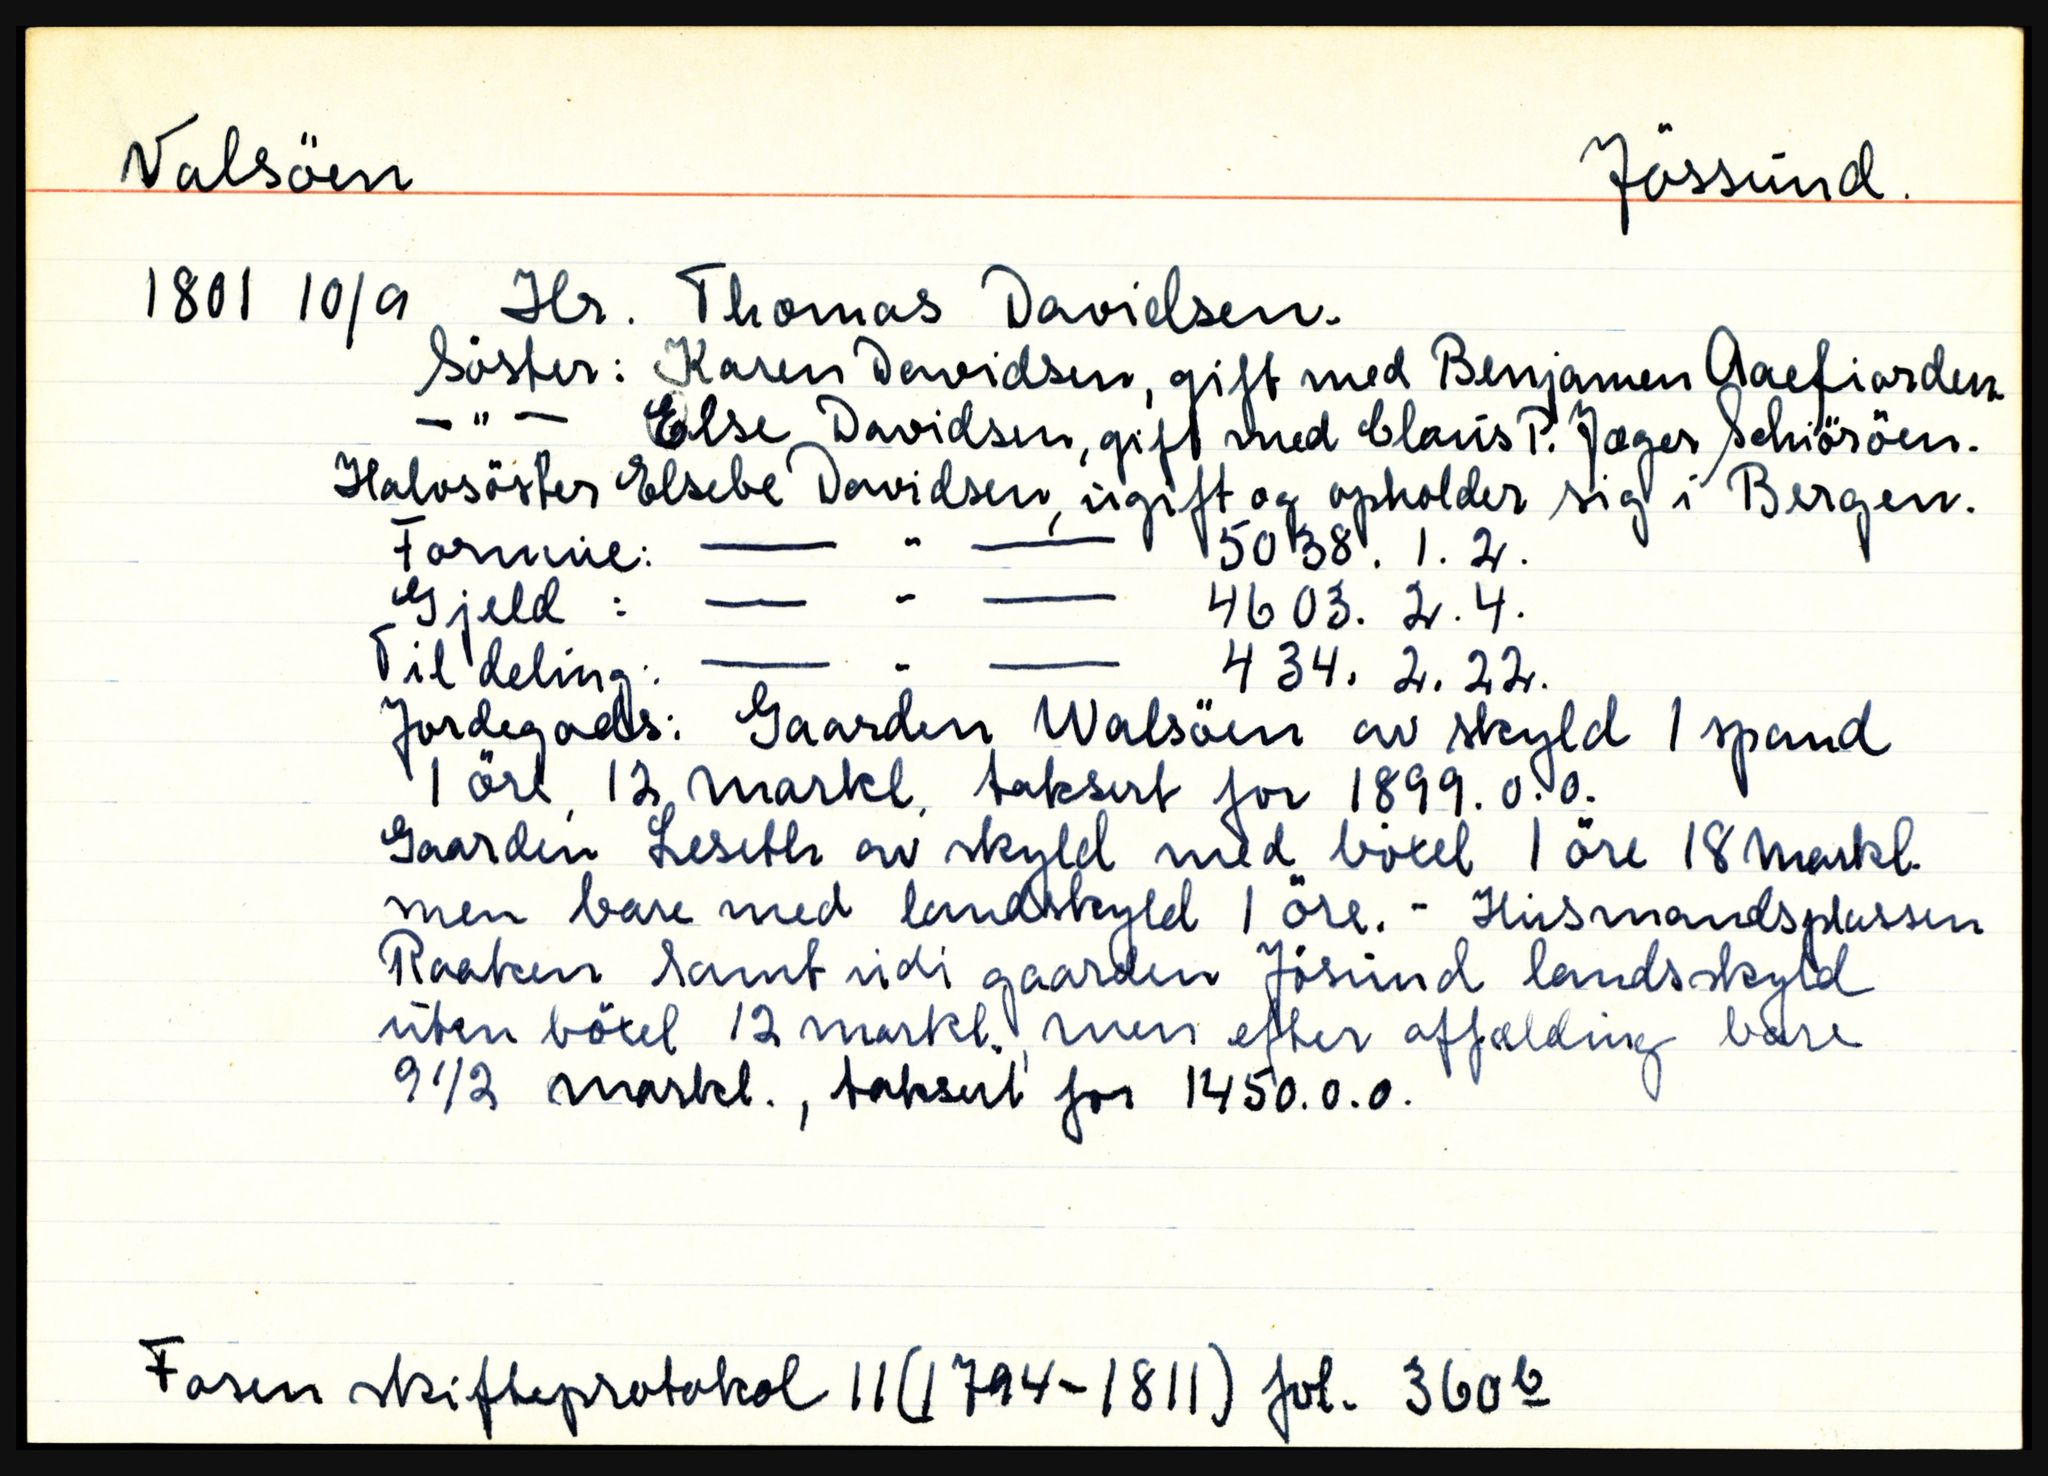 Valsöen Jössund.
1801 10/9 Hr. Thomas Davidsen.
Söster: Karen Davidsen, gift med Benjamen Aaefiorden
— " — Else Davidsen, gift med Claus P. Jæger Schiöröen.
Halvsöster Elsebe Davidsen, ugift og opholder sig i Bergen.
Formue: — " — 5038. 1. 2.
Gjeld : — " — 4603. 2. 4.
Til deling: — " — 434. 2. 22.
Jordegods: Gaarden Walsöen av skyld 1 spand
1 öre, 12 markl. taksert for 1899. 0. 0.
Gaarden Leseth av skyld med böxel 1 öre 18 markl.
men bare med landskyld 1 öre. - Husmandsplassen
Raaken samt udi gaarden Jösund landsskyld
uten böxel 12 markl., men efter affælding bare
9 1/2 markl., taksert for 1450. 0. 0.
Fosen skifteprotokol 11 (1794-1811) fol. 360 b